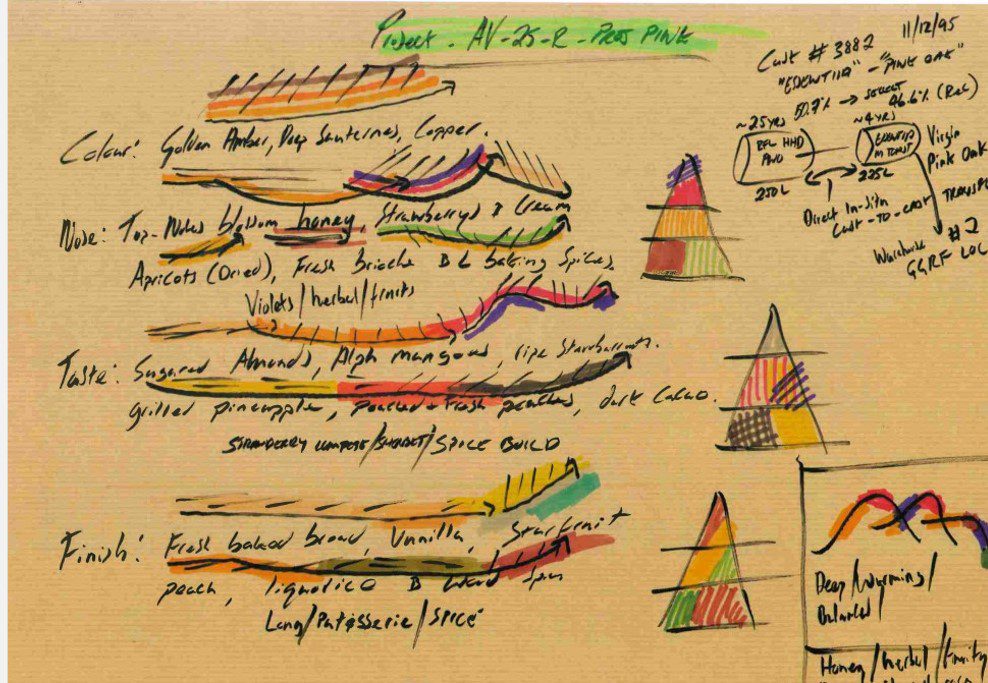 Project - AV-25-R - PROJ PINK
11/12/95
Cask # 3882
"PINK OAK"
50.7% → SELECT
46.6% (Rec)
~25 YRS
~4 YRS
RFL HHD
250L
225L
Virgin
Pink Oak
Direct In-situ
Cask-to-cask
Warehouse #2
GGRF LOC
Colour: Golden Amber, Deep Sauternes, Copper.
Nose: Top-Notes blossom honey, Strawberrys & Cream
Apricots (Dried), Fresh brioche & baking Spices,
Violets/herbal/fruits
Taste: Sugared Almonds, Alph mangoes, ripe Starburst.
grilled pineapple, poached + Fresh peaches, dark Cacao.
STRAWBERRY COMPOTE/SHERBET/SPICE BUILD
Finish: Fresh baked bread, Vanilla, Starfruit
peach, liquorice & Wood Spices
Long/Patisserie/SPICE
Deep/Warming/
Balanced/
Honey/herbal/fruity